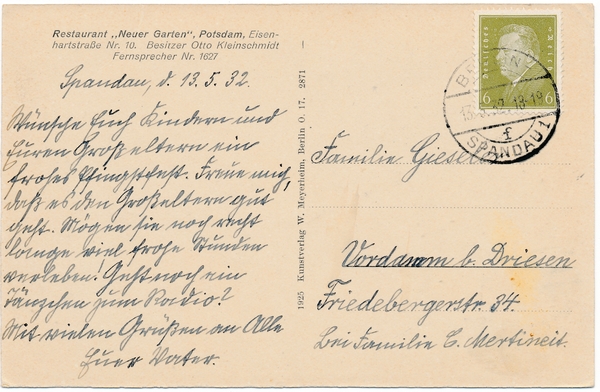 Restaurant „Neuer Garten“, Potsdam, Eisen-
hartstraße Nr. 10. Besitzer Otto Kleinschmidt
Fernsprecher Nr. 1627
Spandau, d. 13.5.32.
Wünsche Euch Kindern und
Euren Großeltern ein
frohes Pfingstfest. Freue mich,
daß es den Großeltern gut
geht. Mögen sie noch recht
lange viel frohe Stunden
verleben! Geht noch ein
Tänzchen zum Radio?
Mit vielen Grüßen an Alle
Euer Vater.
1925 Kunstverlag W. Meyerheim, Berlin O. 17. 2871
6 6
BERLIN
13. 32. 18-19
f
SPANDAU 1
Familie
Vordamm b. Driesen
Friedebergerstr. 34.
Bei Familie E. Mertineit.